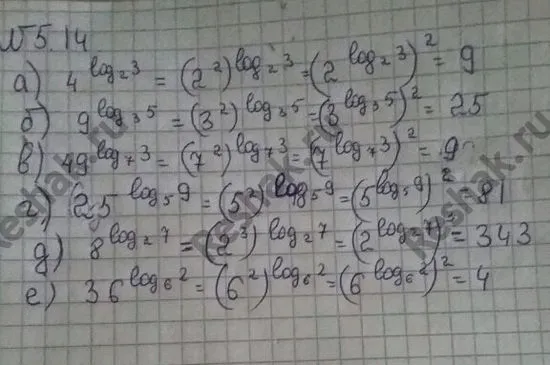 №5.14.
а) 4^log₂3 = (2²)^log₂3 = (2^log₂3)² = 9
б) 9^log₃5 = (3²)^log₃5 = (3^log₃5)² = 25
в) 49^log₇3 = (7²)^log₇3 = (7^log₇3)² = 9
г) 25^log₅9 = (5²)^log₅9 = (5^log₅9)² = 81
д) 8^log₂7 = (2³)^log₂7 = (2^log₂7)³ = 343
е) 36^log₆2 = (6²)^log₆2 = (6^log₆2)² = 4
Reshak.ru
Reshak.ru
Reshak.ru